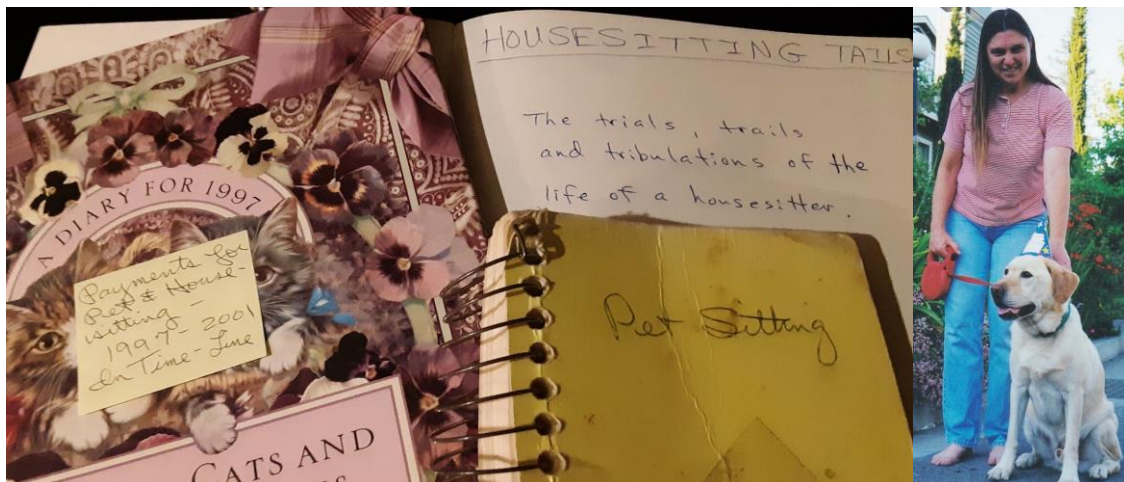 A DIARY FOR 1997
Payments for
Pet & House-
sitting -
1997-2001
On Time-Line
CATS AND
HOUSESITTING TAILS
The trials, trails
and tribulations of the
life of a housesitter.
Pet Sitting